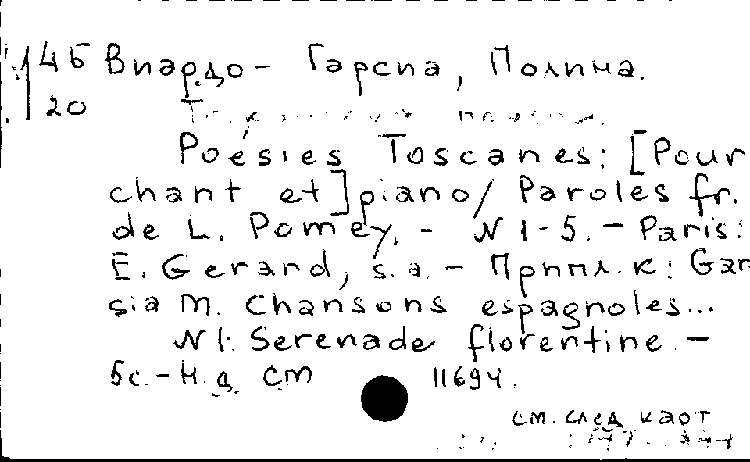 45 Виардо - Гарсиа, Полина.
20
Poésies Toscanes: [Pour
chant et] piano / Paroles fr.
de L. Pomey. - N 1-5. - Paris:
E. Gerand, s.a. - Припл. к: Gar
sia M. Chansons espagnoles...
N 1: Serenade florentine. -
5с. - Н.д. см 11694.
см. след карт